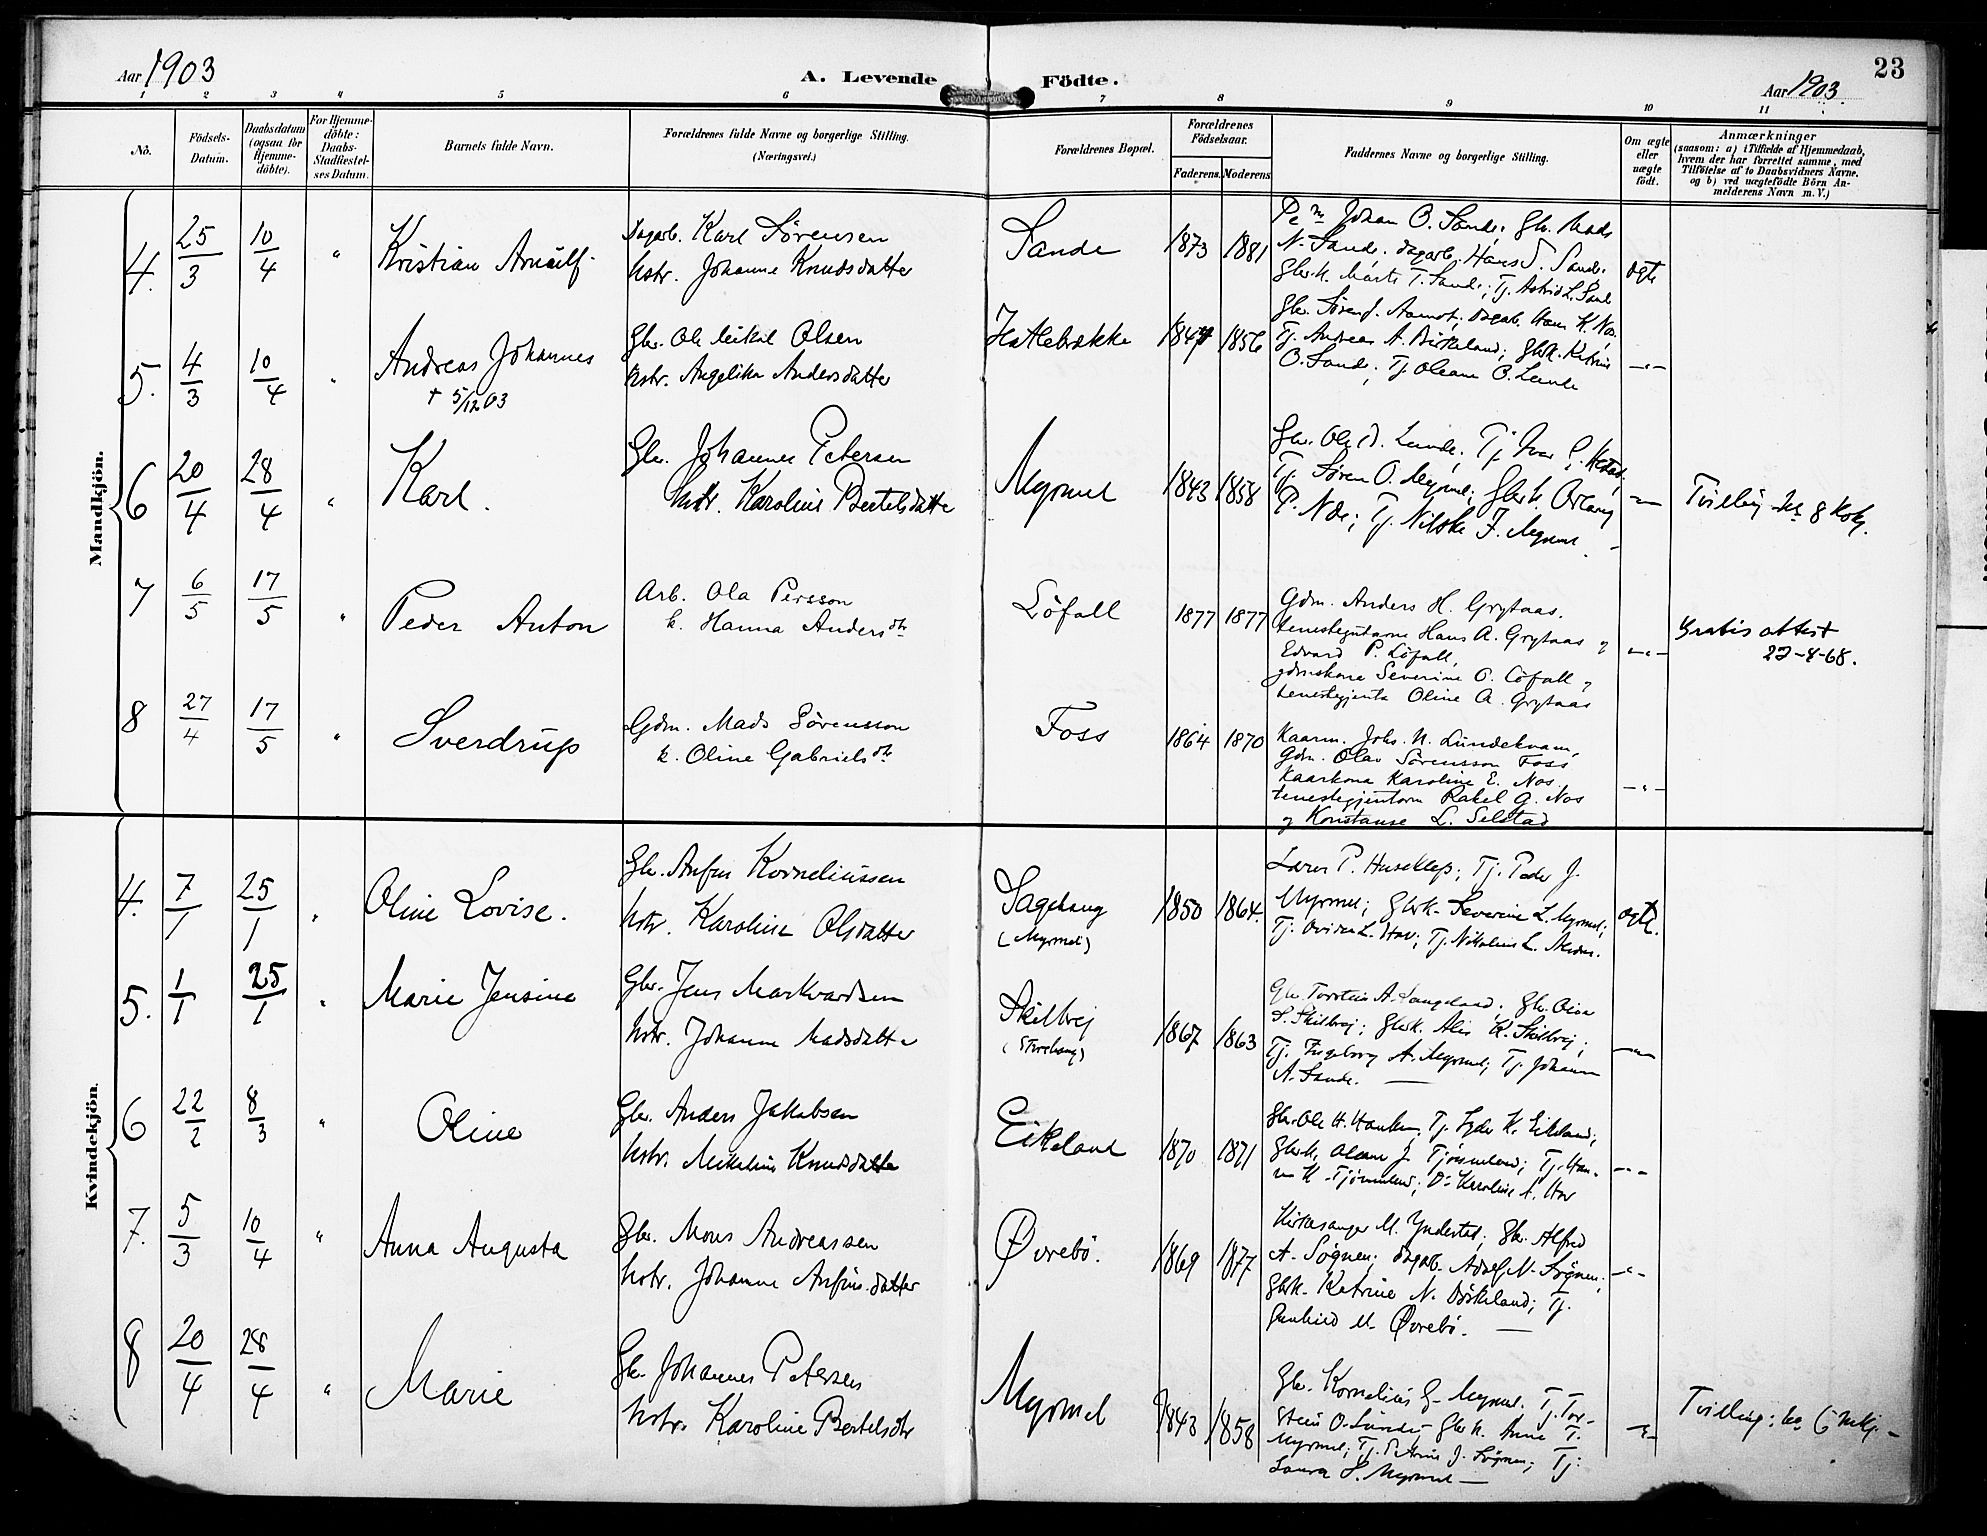 Aar 1903
A. Levende Födte.
Aar 1903.
23
1 2 3 4 5 6 7 8 9 10 11
No.
Födsels-
Datum.
Daabsdatum
(ogsaa for
Hjemme-
döbte).
For Hjemme-
döbte:
Daabs-
Stadfæstel-
ses Datum.
Barnets fulde Navn.
Forældrenes fulde Navne og borgerlige Stilling.
(Næringsvei.)
Forældrenes Bopæl.
Forældrenes
Födselsaar.
Faderens. Moderens.
Faddernes Navne og borgerlige Stilling.
Om ægte
eller
uægte
födt.
Anmærkninger
(saasom: a) i Tilfælde af Hjemmedaab,
hvem der har forrettet samme, med
Tilföielse af to Daabsvidners Navne.
og b) ved uægtefödte Börn An-
melderens Navn m. V.)
Mandkjön.
4. 25/3 10/4 " Kristian Arnulf.
Dagarb. Karl Sørensen
Hstr. Johanne Knudsdatter
Sande 1873 1881
Johan O. Sande; Gbr. Mads
N. Sande. dagarb. Hans S. Sande.
Gbrk. Marte T. Sande; Tj. Astrid L. Sande
ægte
5. 4/3 10/4 " Andreas Johannes
+ 5/12 03
Gbr. Ole Mikal Olsen
Hstr. Angelika Andersdatter
Hatlebrække 1847 1856
Gbr. Søren J. Aamot; dagarb. Hans K. Nos.
Tj. Andreas A. Birkeland; Gbrk. Katrine
O. Sande; Tj. Oleane O. Leirvle
—"—
6 20/4 28/4 " Karl.
Gbr. Johannes Petersen
Hstr. Karoline Bertelsdatter
Myrmel 1843 1858
Gbr. Ole D. Lunde; Tj. Ivar
Tj. Søren O. Myrmel; Gbrk.
P. Nos; Tj. Nilske J. Myrmel.
—"—
Tvilling No 8 Kvkj.
7 6/5 17/5 " Peder Anton
Arb. Ola Persson
k. Hanna Andersdtr
Löfall 1877 1877
Gdm. Anders H. Grytaas.
tenestegutarne Hans A. Grytaas og
Edvard P. Löfall,
gdmskona Severine O. Löfall og
tenestegjenta Oline A. Grytaas
—"—
Gratis attest
22-8-68.
8 27/4 17/5 " Sverdrup
Gdm. Mads Sörensson
k. Oline Gabrielsdtr
Foss 1864 1870
Kaarm. Johs. N. Lundekvam,
Gdm. Olav Sörensson Foss
Kaarkona Karoline E. Nos
tenestegjentorn Rakel G. Nos
og Konstanse L. Selstad
—"—
Kvindekjön.
4. 7/1 25/1 " Oline Lovise.
Gbr. Anfin Korneliussen
Hstr. Karoline Olsdatter
Sagehaug
(Myrmel)
1850 1864.
Lærer P. Huseklep; Tj. Peder J.
Myrmel; Gbrk. Severine L. Myrmel;
Tj. Ovidia L. Hov; Tj. Nikoline L.
ægte.
5. 1/1 25/1 " Marie Jensine
Gbr. Jens Markvardsen
Hstr. Johanne Madsdatter
Skilbrej
(Storehaug)
1867 1863
Gbr. Torstein A. Langeland; Gbr.
S. Skilbrej; Gbrk. Alis K. Skilbrej;
Tj. Ingeborg A. Myrmel; Tj. Johanne
A. Sande.
—"—
6 22/2 8/3 " Oline
Gbr. Anders Jakobsen
Hstr. Mikeline Knudsdatter
Eikeland 1870 1871
Gbr. Ole H. Haukes; Tj. Lyder K. Eikeland;
Gbrk. Oleane J. Tjønneland; Tj. Han-
na K. Tjønneland; Do Karoline A. Hov
—"—
7. 5/3 10/4 " Anna Augusta
Gbr. Mons Andreassen
Hstr. Johanne Anfinsdatter
Øvrebö. 1869 1877
Kirkesanger M. Yndestad; Gbr. Alfred
A. Sögnen; dagarb. Adolf N. Sögnen;
Gbrk. Katrine N. Birkeland; Tj.
Gunhild M. Øvrebö.
—"—
8 20/4 28/4 " Marie
Gbr. Johannes Petersen
Hstr. Karoline Bertelsdtr
Myrmel 1843 1858
Gbr. Kornelius G. Myrmel. Tj. Tor-
stein O. Lunde; Gbrk. Anne T.
Myrmel; Tj. Petrine J. Sögnen; Tj.
Laura S. Myrmel
—"—
Tvilling: No 6 Mkj.